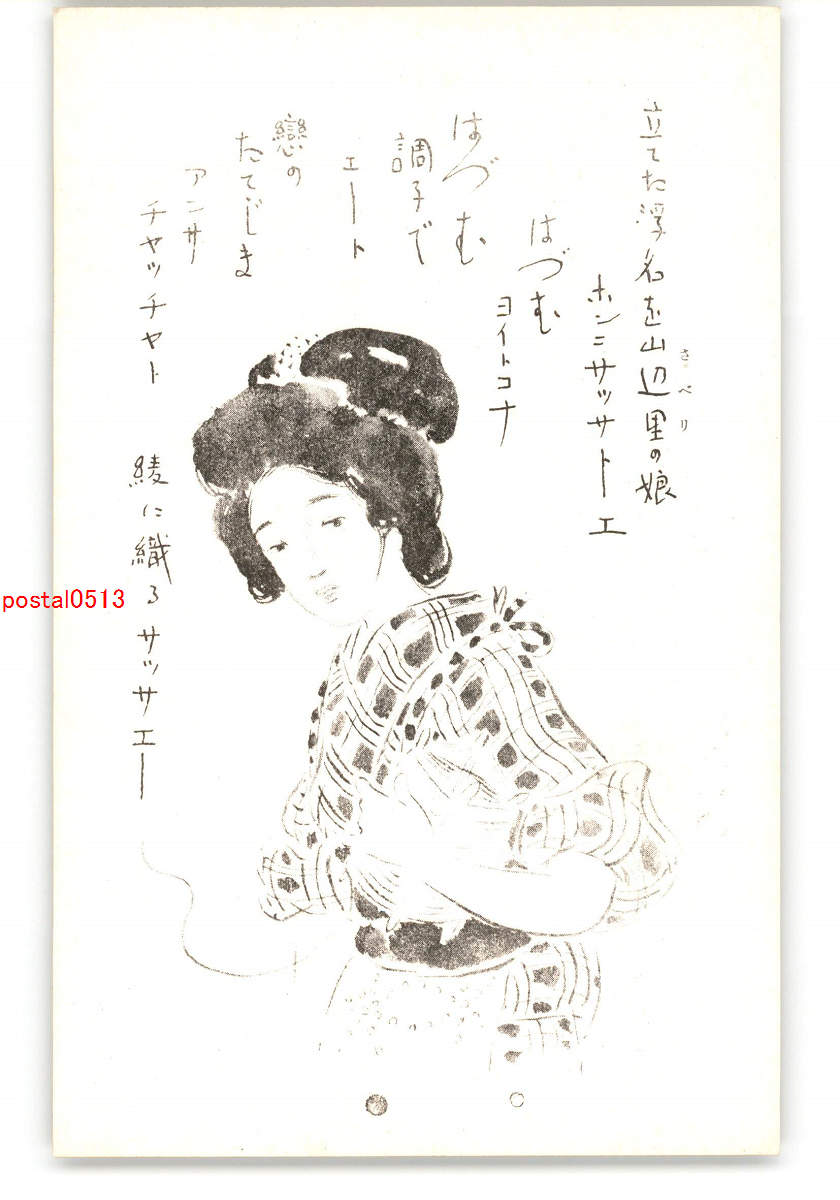 立てた浮名を山辺里の娘
さべり
ホンニサッサトーエ
はづむ
ヨイトコナ
はづむ
調子で
エート
戀の
たてじま
アンサ
チャッチャト
綾に織るサッサエー
postal0513